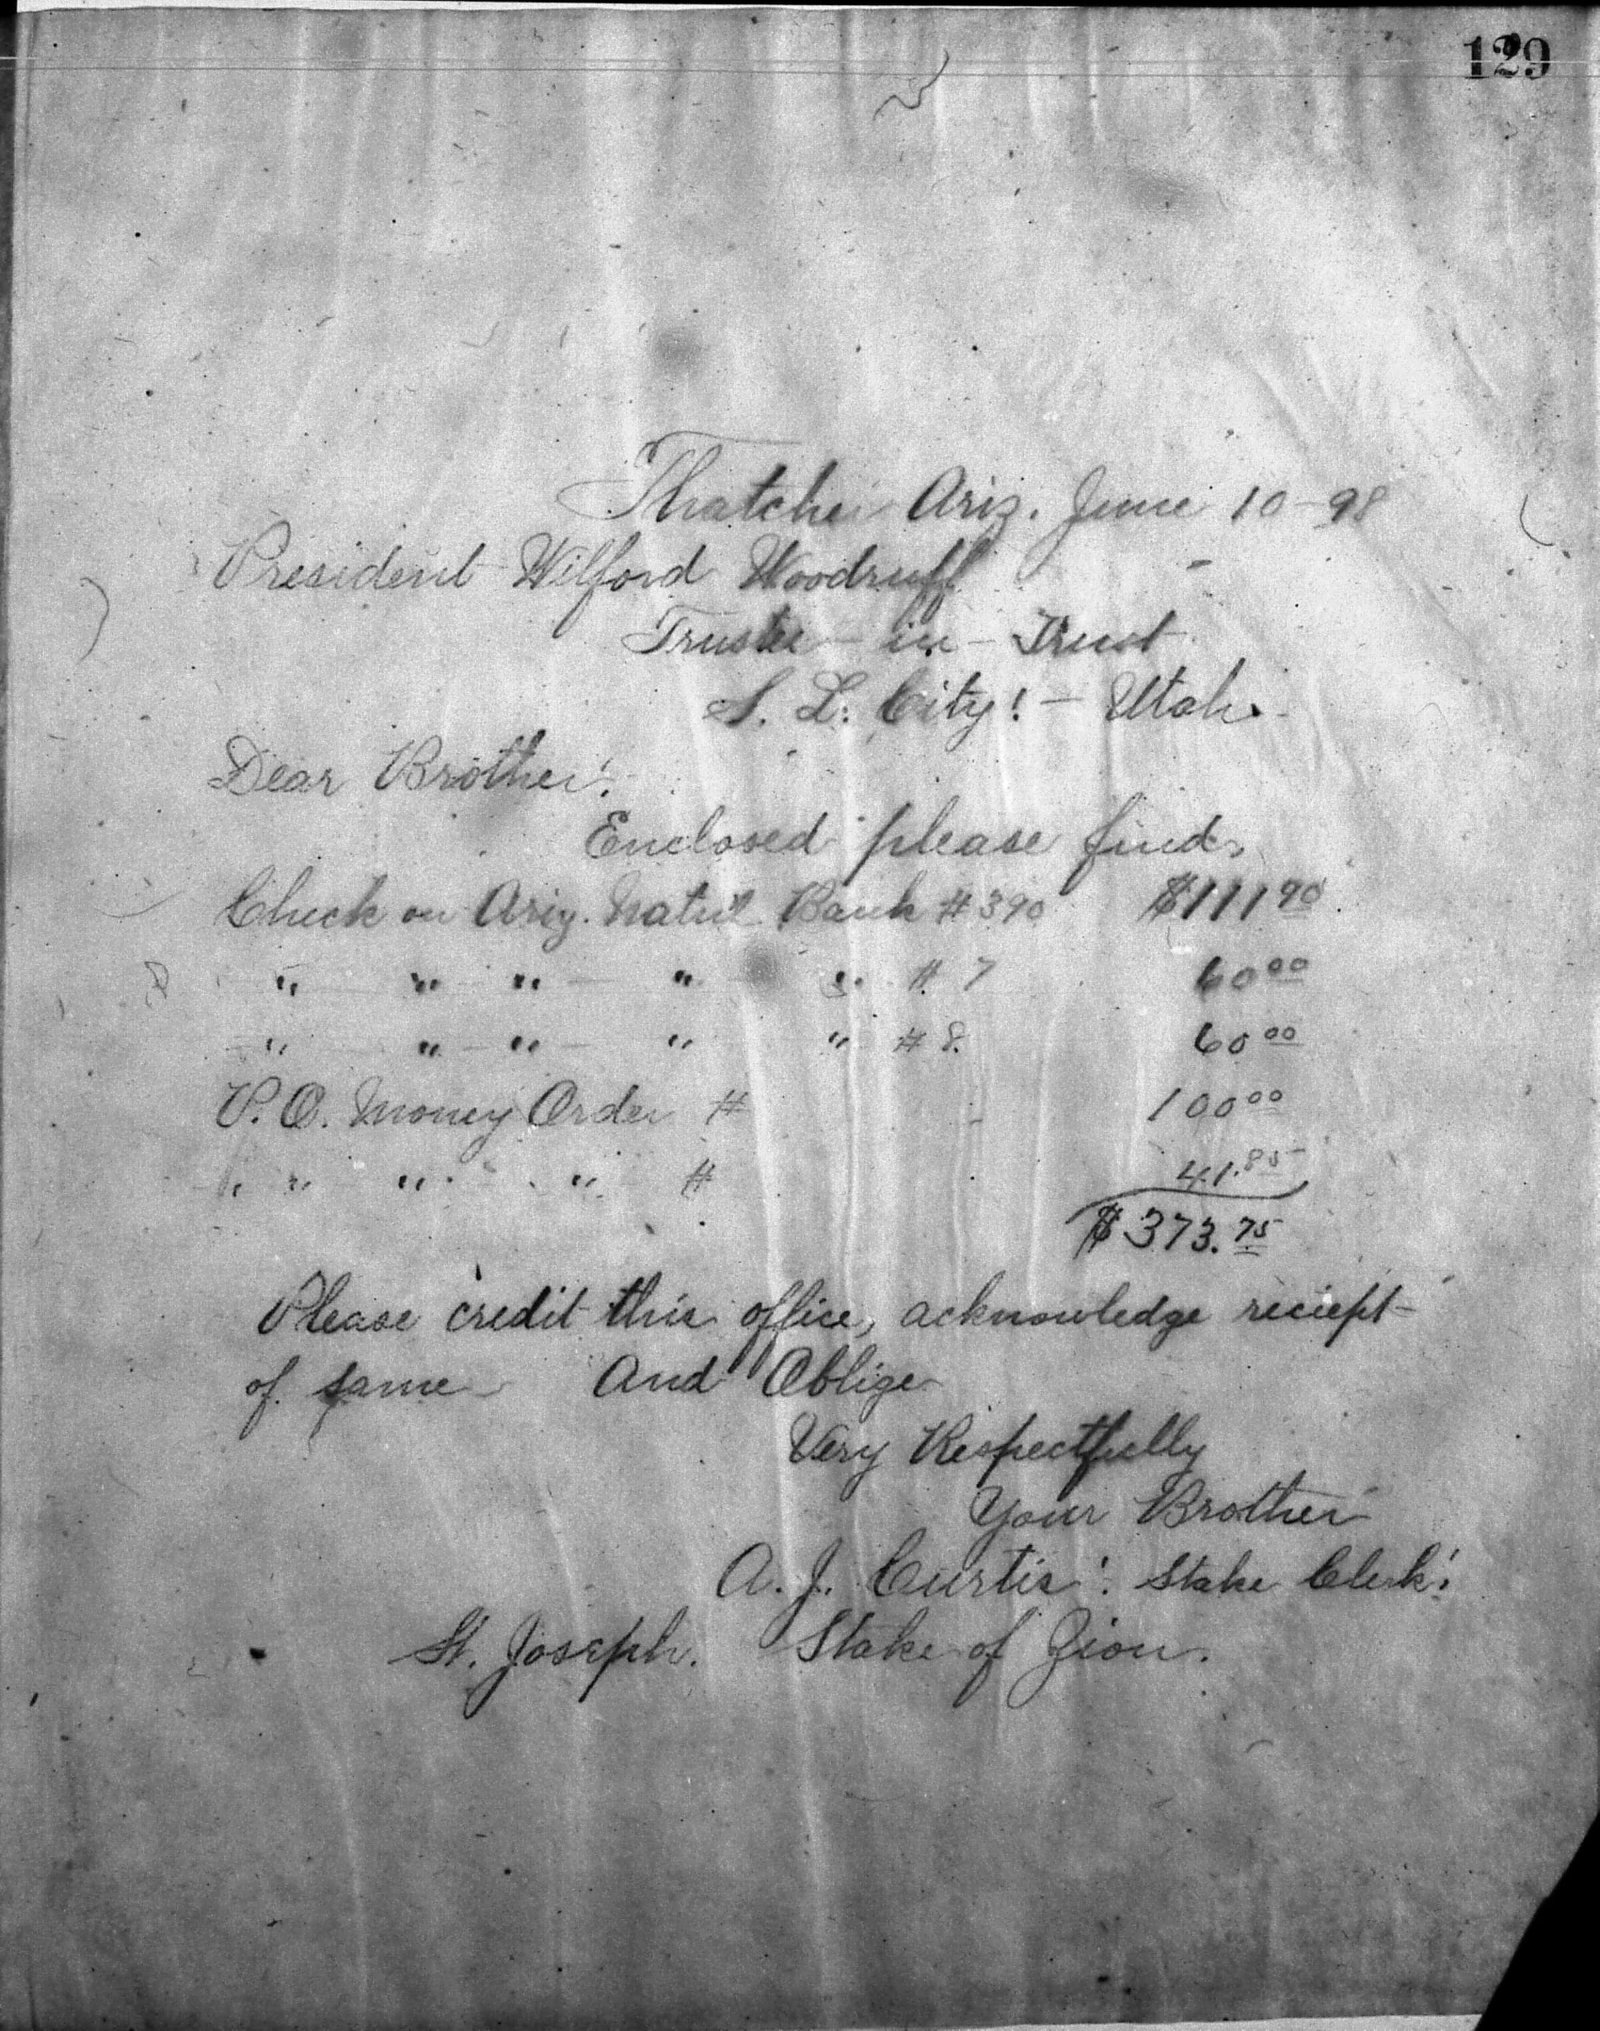 129
Thatcher Ariz. June 10-98
President Wilford Woodruff
Trustee-in-Trust
S. L. City! - Utah.
Dear Brother!
Enclosed please find,
Check on Ariz. Natnl Bank #390 $111 90
" " " " " #7 60 00
" " " " " #8. 60 00
P. O. Money Order # 100 00
" " " " # 41. 85
$373. 75
Please credit this office, acknowledge reciept
of same And Oblige
Very Respectfully
Your Brother
A. J. Curtis! Stake Clerk!
St. Joseph. Stake of Zion.